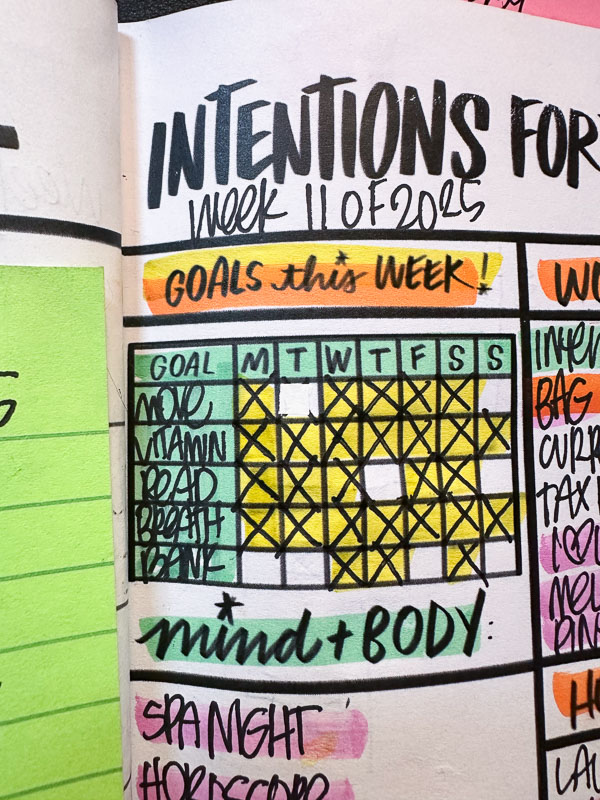 INTENTIONS FOR
WEEK 11 OF 2025
GOALS this WEEK!
GOAL M T W T F S S
MOVE X X X X X
VITAMIN X X X X X X X
READ X X X X X
BREATH X X X X X X X
BANK X X X
mind + BODY:
SPA NIGHT
HOROSCOPE
WO
INTEN
BAG
CURR
TAX
MEL
PIN
HO
LAU